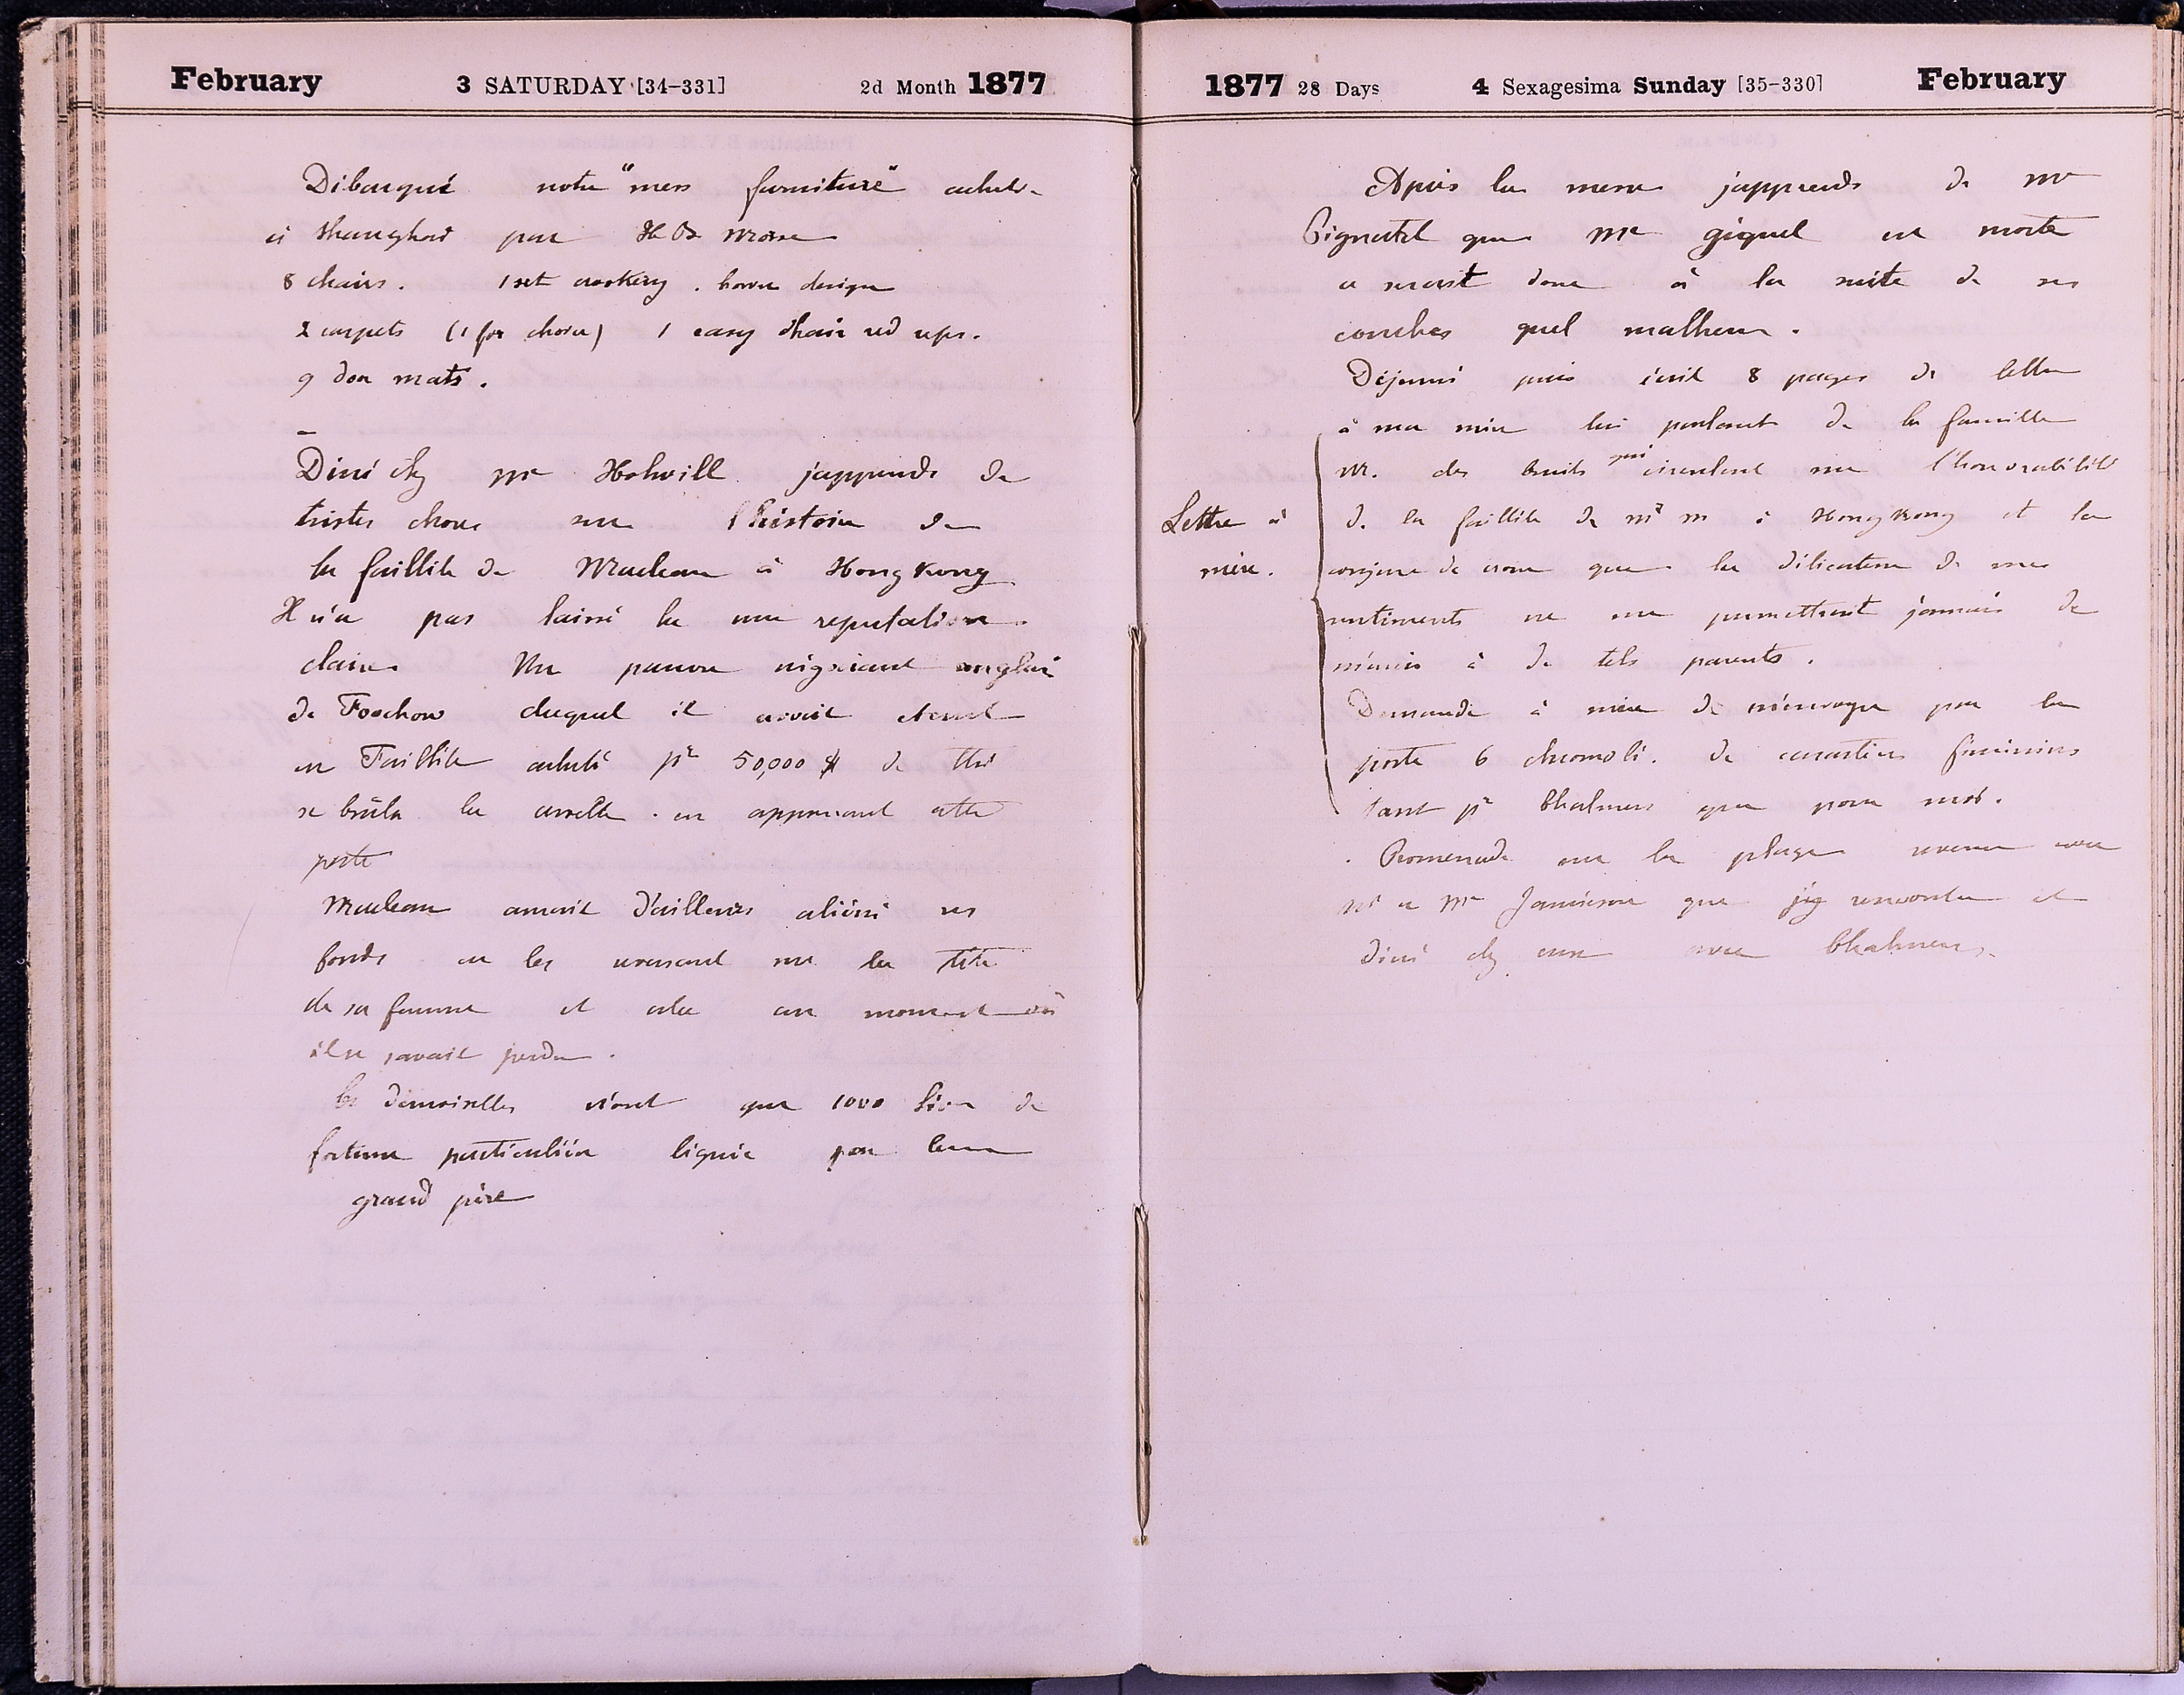 February 3 SATURDAY [34-331] 2d Month 1877
Débarqué notre "mess furniture" acheté
à Shanghai par H B Morse
8 chairs. 1 set crockery. horse design
2 carpets (1 for choir) 1 easy chair red reps.
9 door mats.
Diné chez Mr Holwill j'apprends de
tristes choses sur l'histoire de
la faillite de Maclean à Hong Kong
Il n'a pas laissé là une reputation
claire. Un pauvre négociant anglais
de Foochow duquel il avait étant
en Faillite acheté pr 50,000 $ de thé
se brûla la cervelle. en apprenant cette
perte
Maclean aurait d'ailleurs aliéné ses
fonds en les versant sur la tête
de sa femme et cela au moment où
il se savait perdu.
les demoiselles n'ont que 1000 livres de
fortune particulière liguée par leur
grand père
1877 28 Days 4 Sexagesima Sunday [35-330] February
Après la messe j'apprends de Mr
Pignatel que Me Giquel est morte
ce serait donc à la suite de ses
couches quel malheur.
Déjeuné puis écrit 8 pages de lettre
à ma mère lui parlant de la famille
M. des bruits qui circulent sur l'honorabilité
Lettre à
mère.
de la faillite de Mr M à Hong Kong et la
conjure de croire que la délicatesse de mes
sentiments ne me permettrait jamais de
m'unir à de tels parents.
Demande à mère de m'envoyer par la
poste 6 chromoli. de caractères féminins
tant pr Chalmers que pour moi.
. Promenade sur la plage revenu avec
Mr et Me Jamieson que j'y rencontre et
diné chez eux avec Chalmers.